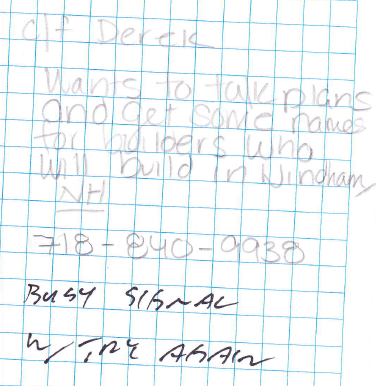 c/f Derek
Wants to talk plans
and get some names
for builders who
will build in Windham,
NH
718-840-9938
BUSY SIGNAL
W/ TRY AGAIN